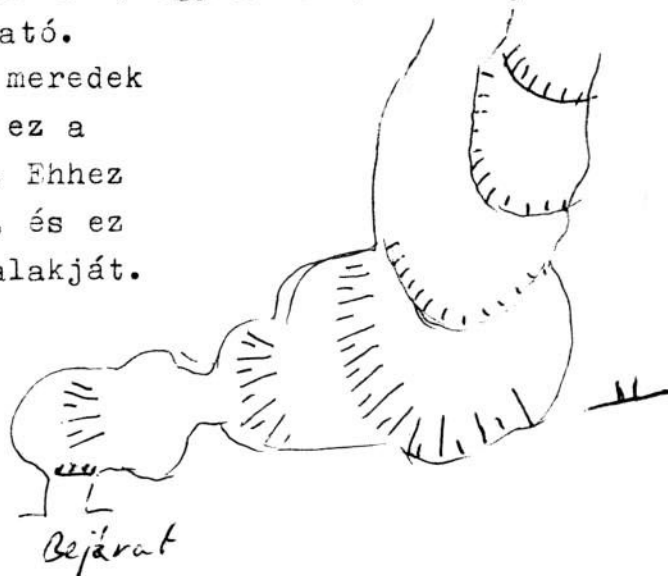 ató.
meredek
ez a
Ehhez
és ez
alakját.
Bejárat